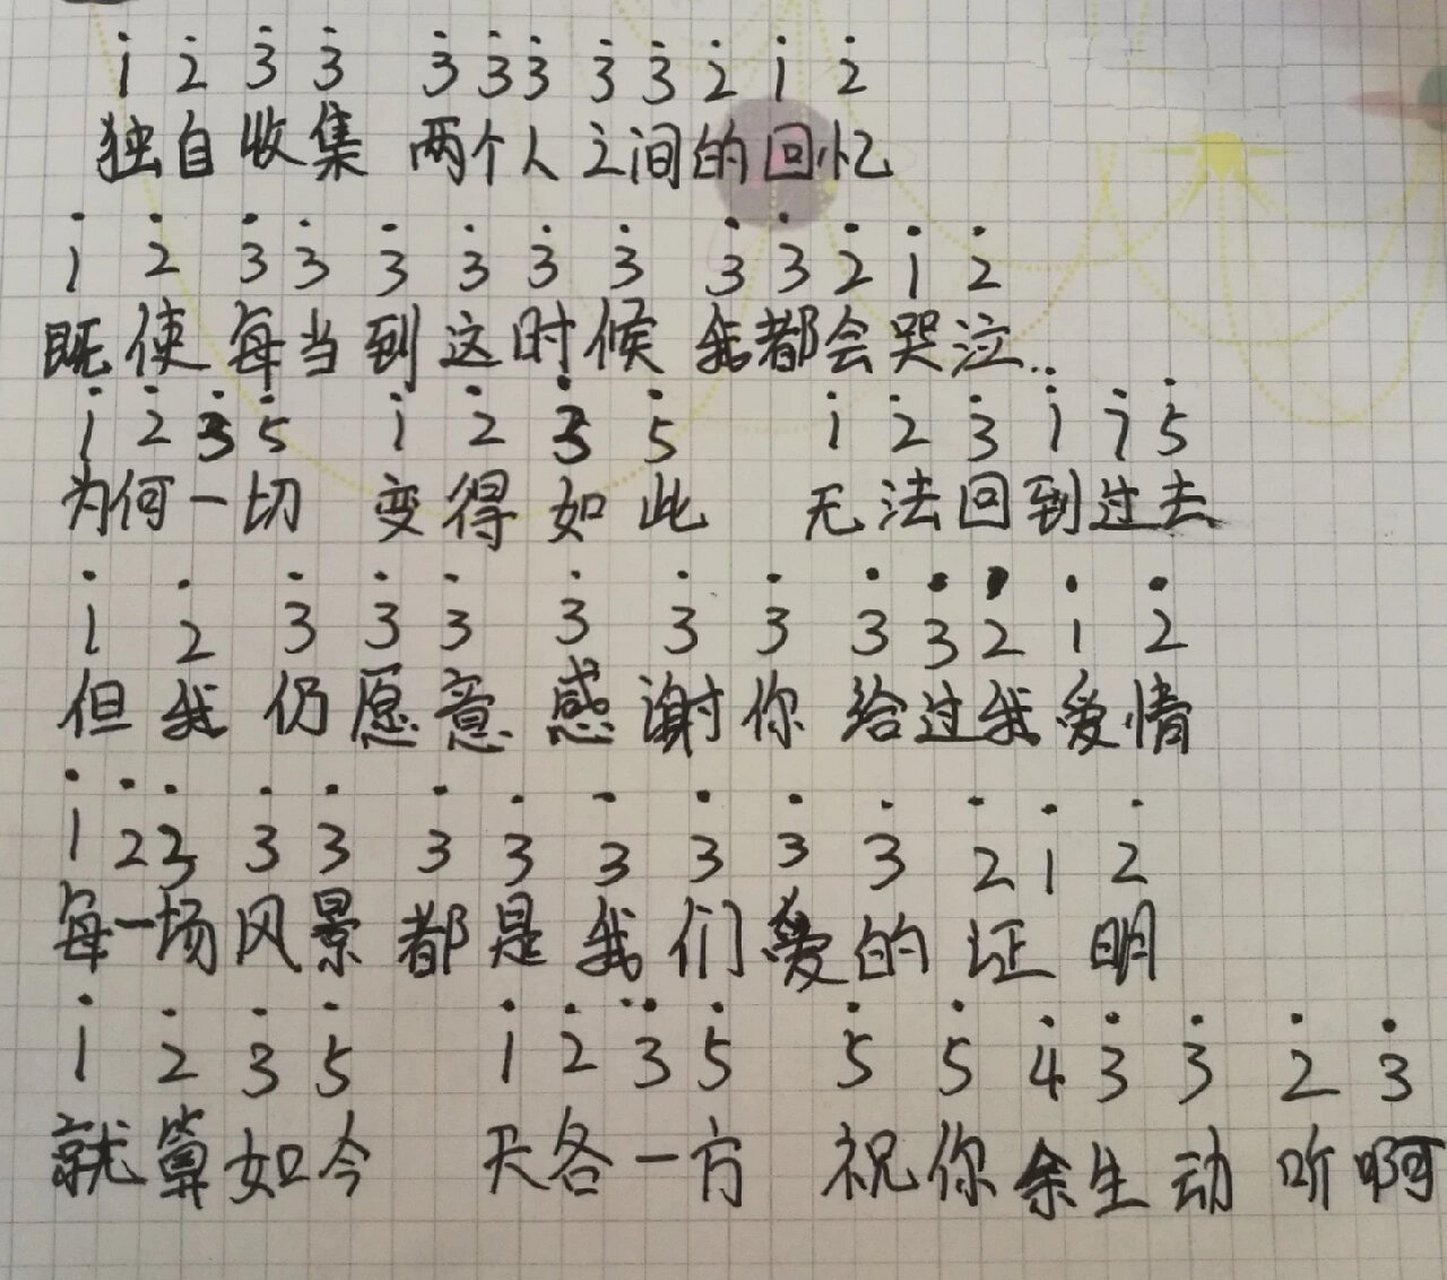 1̇ 2̇ 3̇ 3̇ 3̇ 3̇ 3̇ 3̇ 3̇ 2̇ 1̇ 2̇
独自收集 两个人之间的回忆
1̇ 2̇ 3̇ 3̇ 3̇ 3̇ 3̇ 3̇ 3̇ 3̇ 2̇ 1̇ 2̇
既使每当到这时候 我都会哭泣..
1̇ 2̇ 3̇ 5̇ 1̇ 2̇ 3̇ 5̇ 1̇ 2̇ 3̇ 1̇ 7̇ 5̇
为何一切 变得如此 无法回到过去
1̇ 2̇ 3̇ 3̇ 3̇ 3̇ 3̇ 3̇ 3̇ 3̇ 2̇ 1̇ 2̇
但我仍愿意感谢你 给过我爱情
1̇ 2̇ 3̇ 3̇ 3̇ 3̇ 3̇ 3̇ 3̇ 3̇ 3̇ 2̇ 1̇ 2̇
每一场风景 都是我们爱的证明
1̇ 2̇ 3̇ 5̇ 1̇ 2̇ 3̇ 5̇ 5̇ 5̇ 4̇ 3̇ 3̇ 2̇ 3̇
就算如今 天各一方 祝你余生动听啊